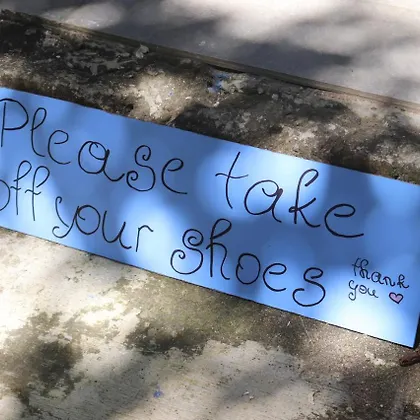 Please take
off your shoes
thank
you